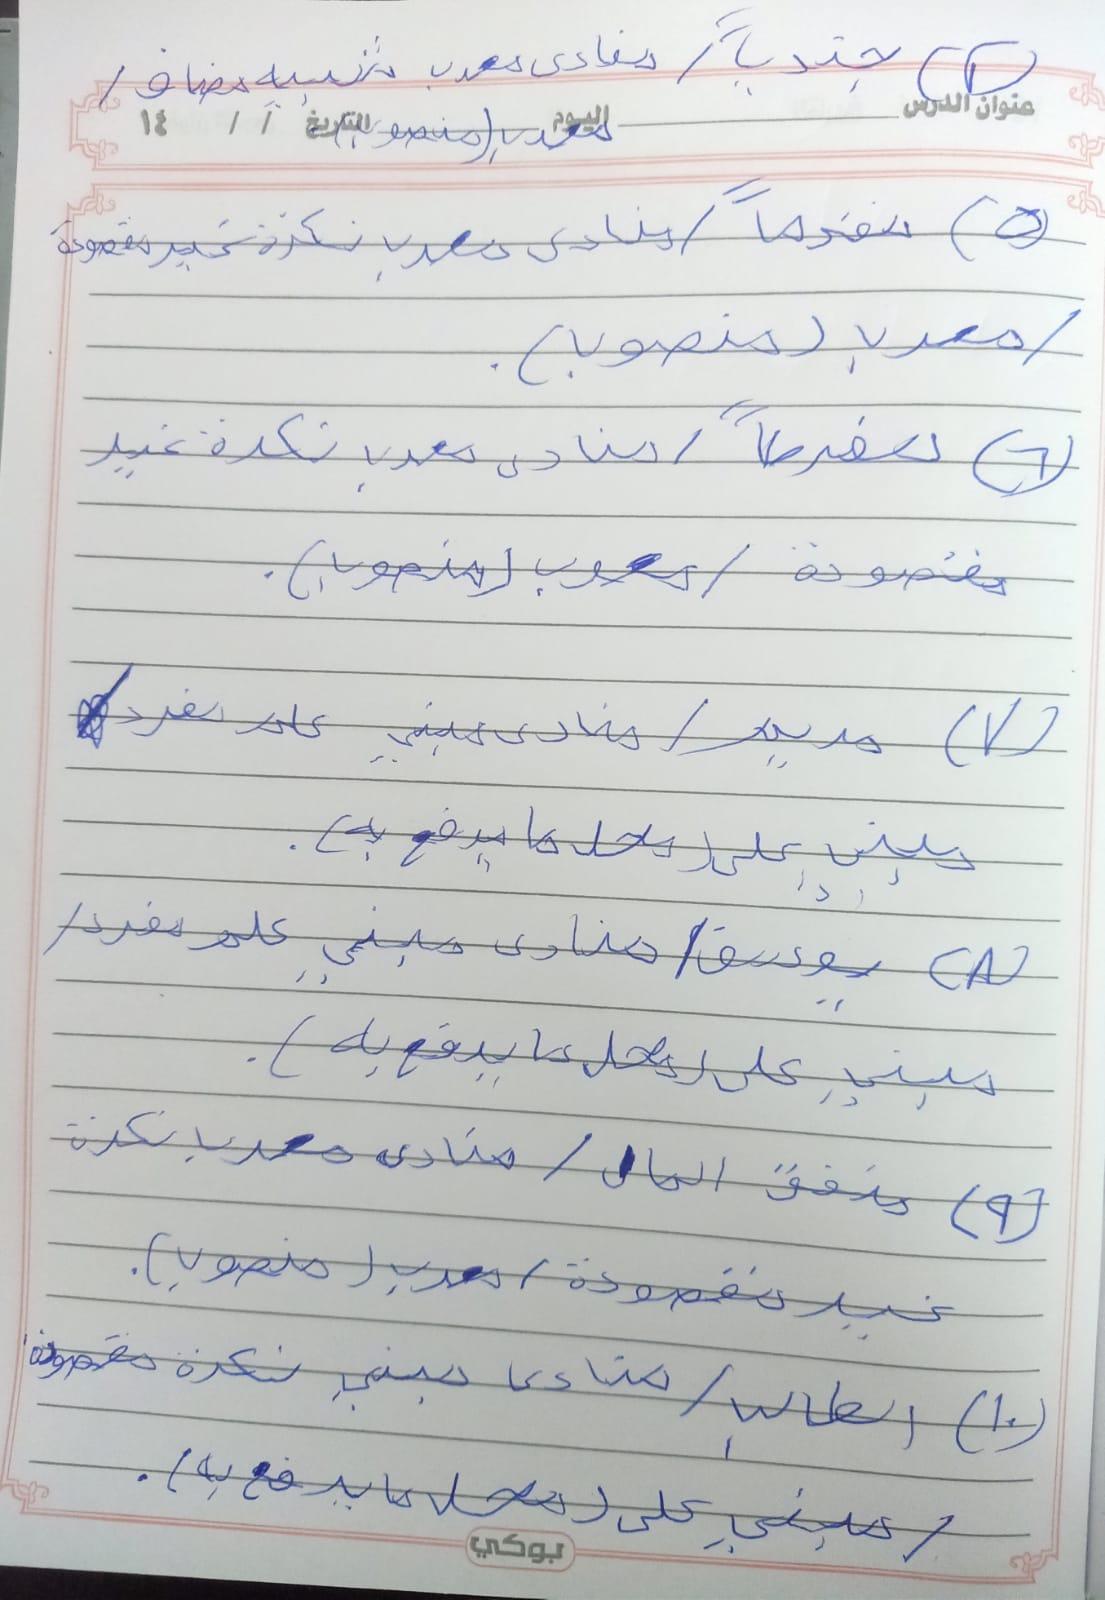 (٤) جندياً / منادى معرب شبيه مضاف /
عنوان الدرس اليوم التاريخ / / ١٤
معرب (منصوب).
(٥) مغرماً / منادى معرب نكرة غير مقصودة
/ معرب (منصوب).
(٦) مفرطاً / منادى معرب نكرة غير
مقصودة / معرب (منصوب).
(٧) مريم / منادى مبني علم مفرد
مبني على (محل ما يرفع به).
(٨) يوسف / منادى مبني علم مفرد /
مبني على (محل ما يرفع به).
(٩) منفق المال / منادى معرب نكرة
غير مقصودة / معرب (منصوب).
(١٠) الطالب / منادى مبني نكرة مقصودة
/ مبني على (محل ما يرفع به).
بوكي